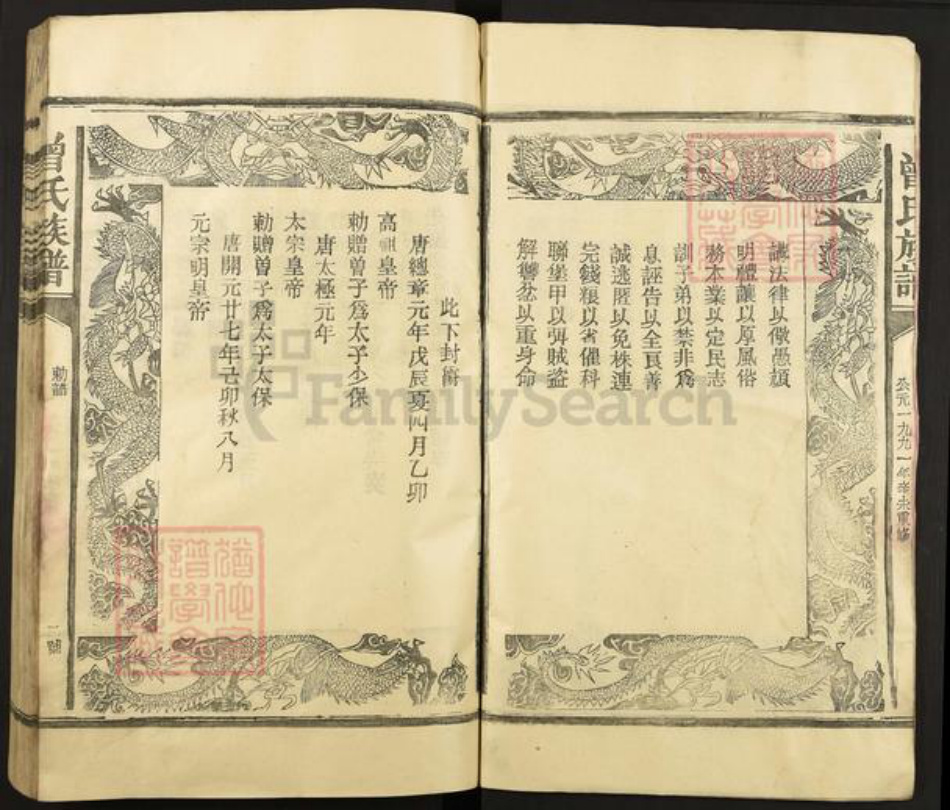 曾氏族譜
公元一九九一年辛未重修
講法律以儆愚頑
明禮讓以厚風俗
務本業以定民志
訓子弟以禁非為
息誣告以全良善
誠逃匿以免株連
完錢粮以省催科
聯堡甲以弭賊盜
解讐忿以重身命
此下封衔
唐總章元年戊辰夏四月乙卯
高祖皇帝
勅贈曾子爲太子少保
唐太極元年
太宗皇帝
勅贈曾子爲太子太保
唐開元廿七年己卯秋八月
元宗明皇帝
曾氏族譜
勅諭
FamilySearch